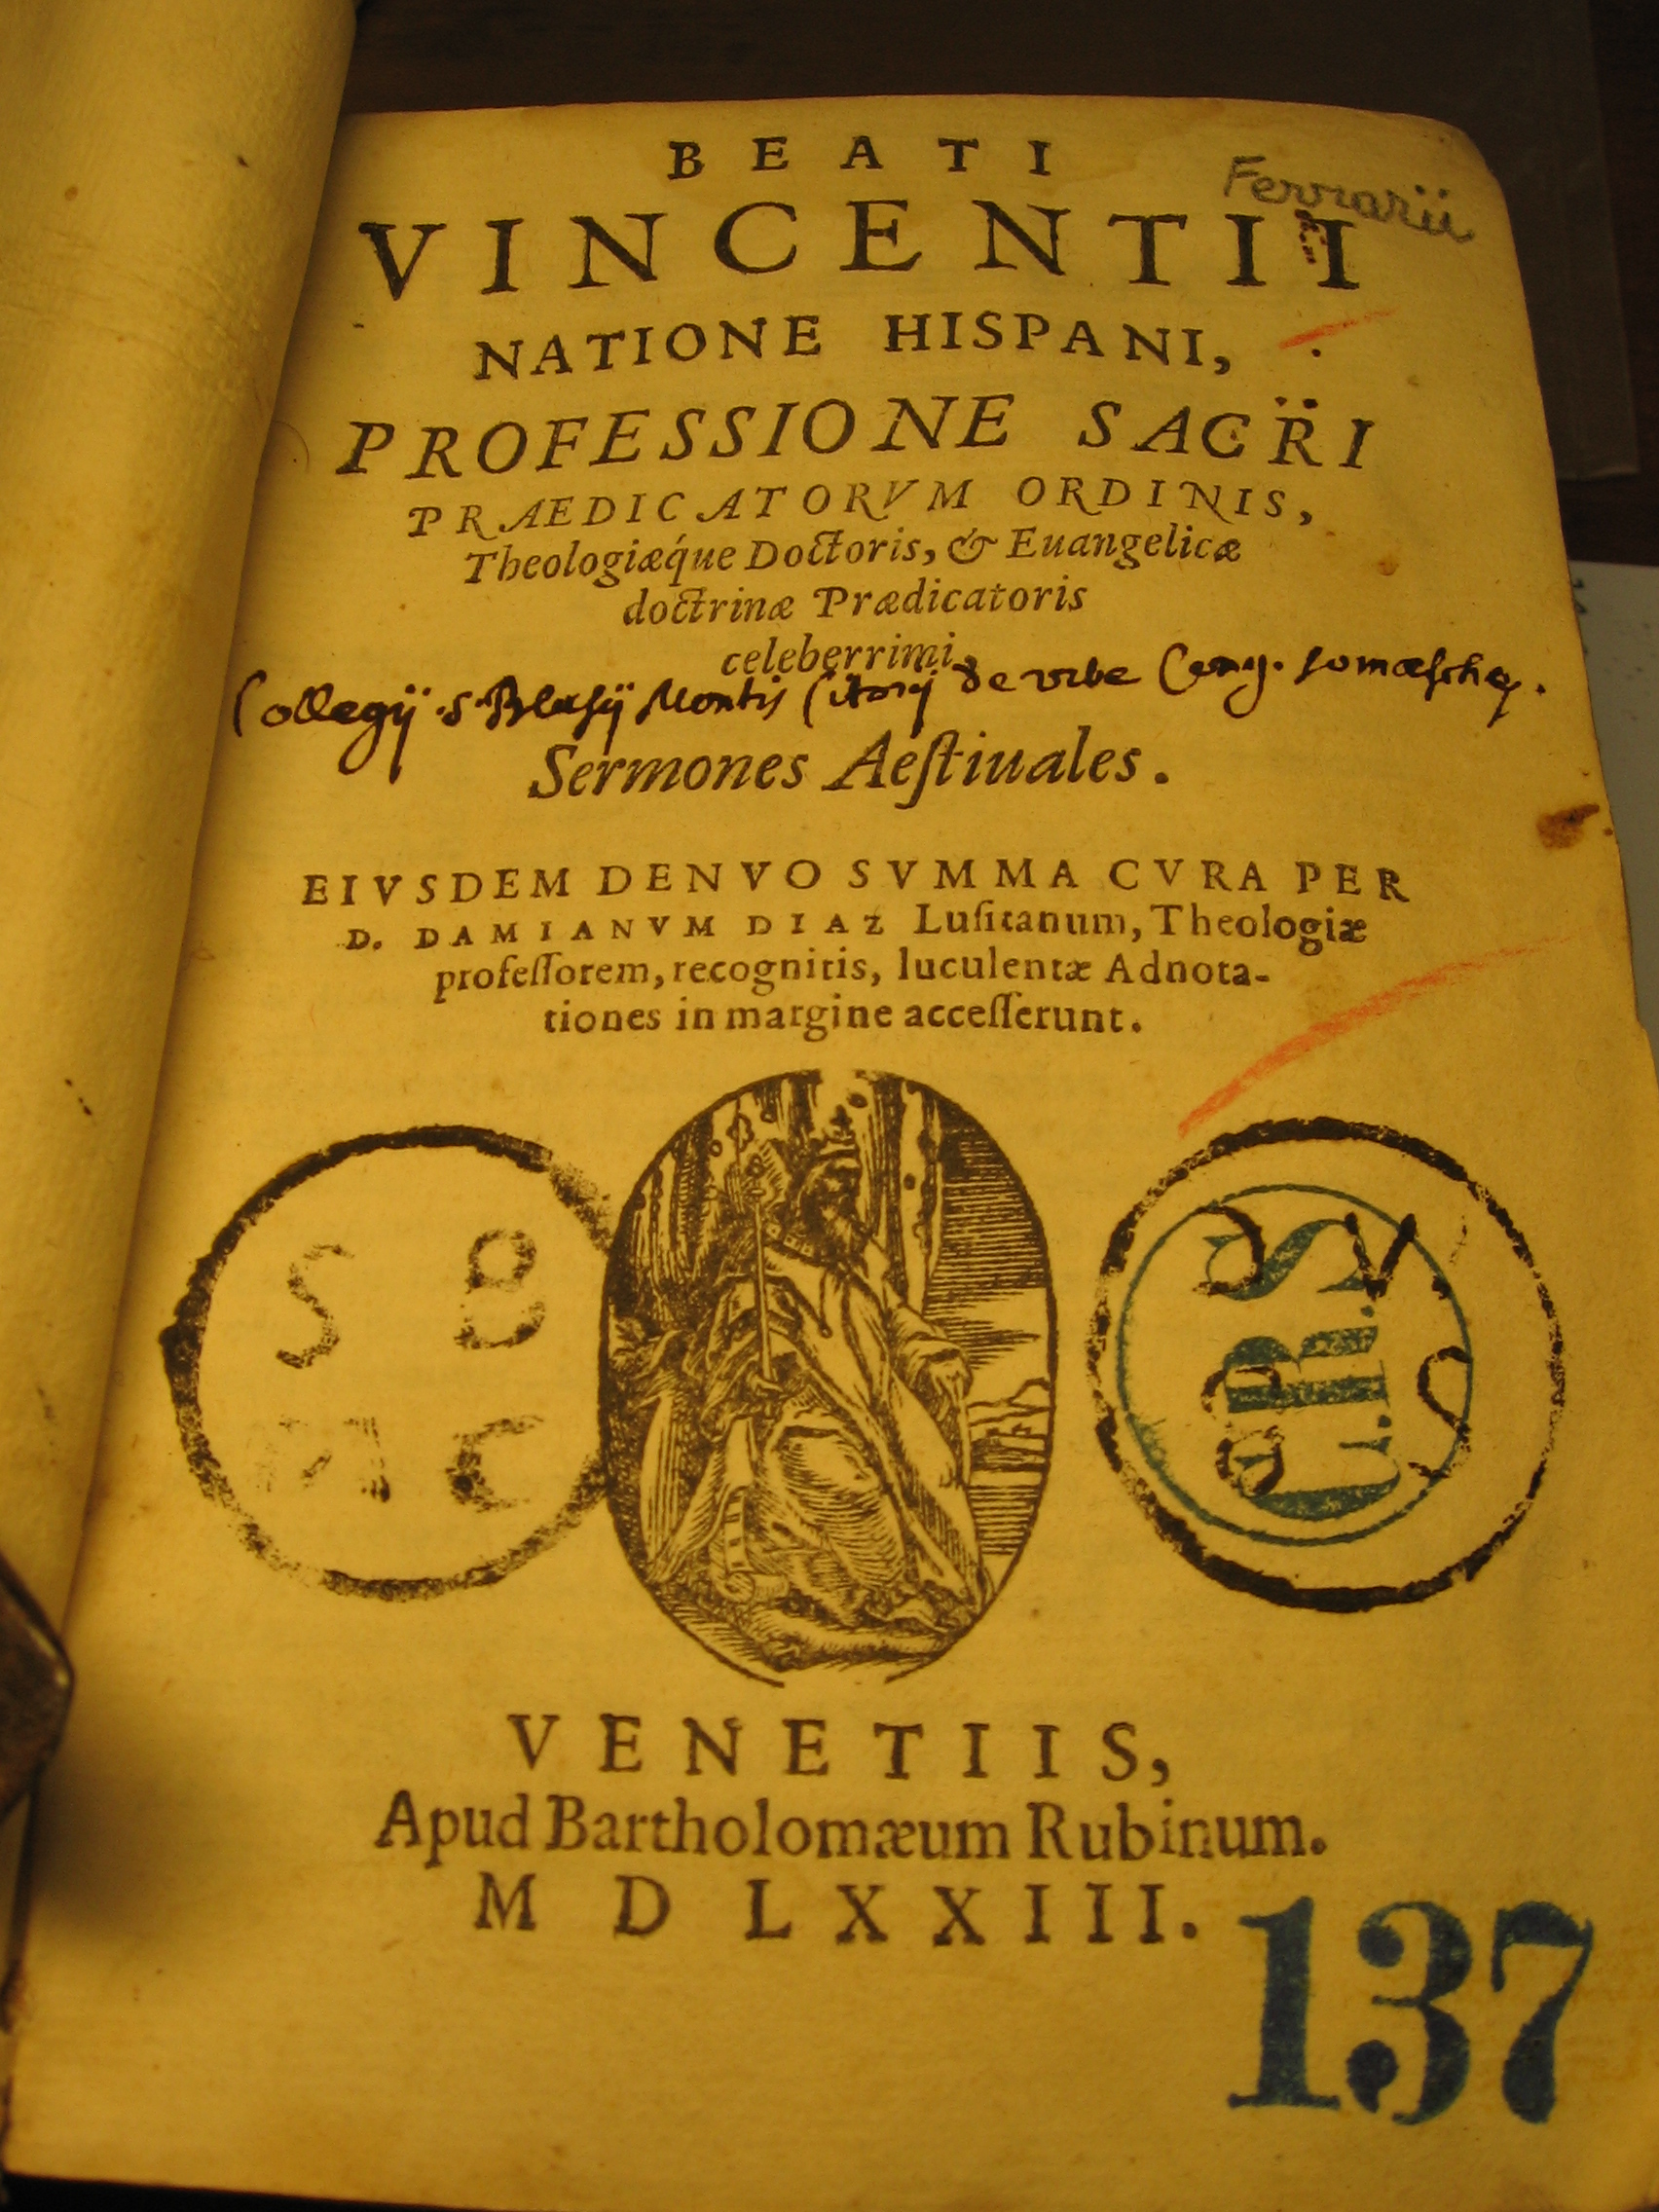 BEATI
Ferrarii
VINCENTII
NATIONE HISPANI,
PROFESSIONE SACRI
PRÆDICATORVM ORDINIS,
Theologiæq́ue Doctoris, & Euangelicæ
doctrinæ Prædicatoris
celeberrimi,
Collegij S. Blasij Montis Citorij de vrbe Cong. somaschę.
Sermones Aeſtiuales.
EIVSDEM DENVO SVMMA CVRA PER
D. DAMIANVM DIAZ Luſitanum, Theologiæ
profeſſorem, recognitis, luculentæ Adnota-
tiones in margine acceſſerunt.
S B
M C
C.R.S.
VENETIIS,
Apud Bartholomæum Rubinum.
MDLXXIII.
137